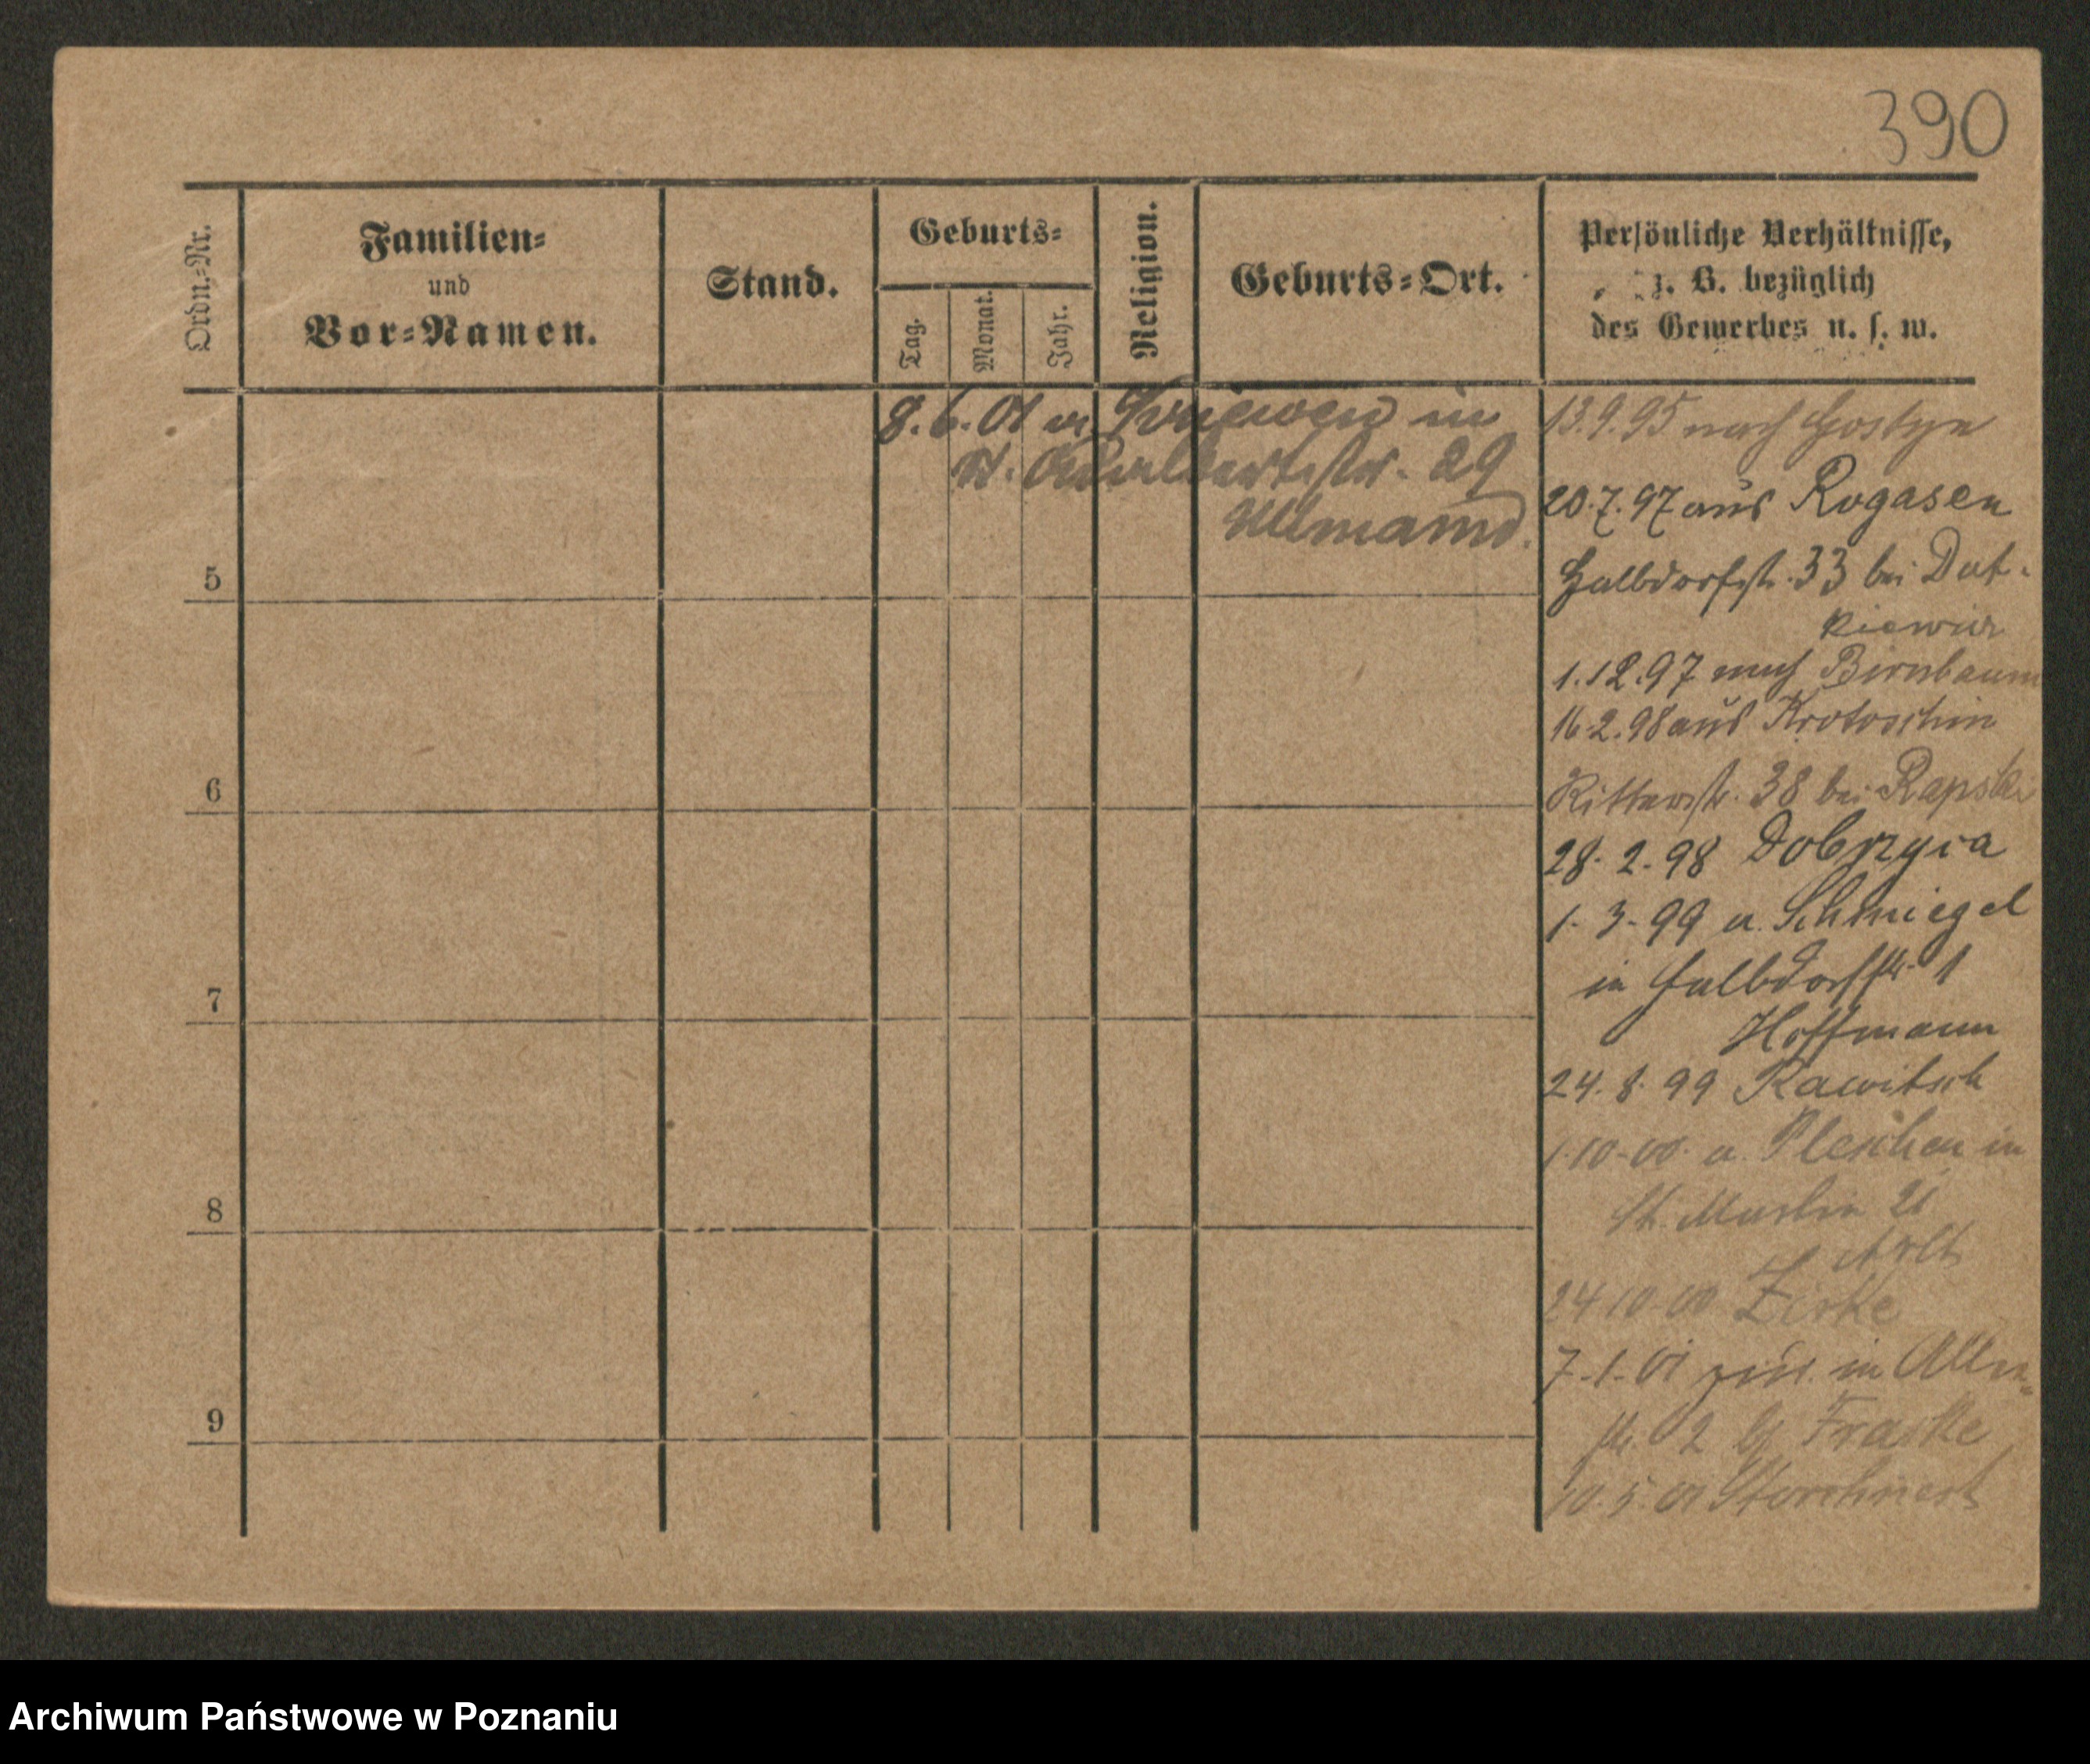 390
Ordn.-Nr.
Familien-
und
Vor-Namen.
Stand.
Geburts-
Tag.
Monat.
Jahr.
Religion.
Geburts-Ort.
Persönliche Verhältnisse,
z. B. bezüglich
des Gewerbes u. s. w.
8.6.01 a. Kriewen in
St. Adalbertstr. 29
Ullmann.
13.9.95 nach Gostyn
20.7.97 aus Rogasen
Halbdorfstr. 33 bei Dut-
kiewicz
1.12.97 nach Birnbaum
16.2.98 aus Krotoschin
Ritterstr. 38 bei Rapski
28.2.98 Dobrzyca
1.3.99 a. Schmiegel
in Halbdorfstr. 1
Hoffmann
24.8.99 Rawitsch
1.10.00. a. Pleschen in
St. Martin 21
Arlt
24.10.00 Zirke
7.1.01 zur. in Allee-
str. 2 Franke
10.5.01 Storchnest
5
6
7
8
9
Archiwum Państwowe w Poznaniu